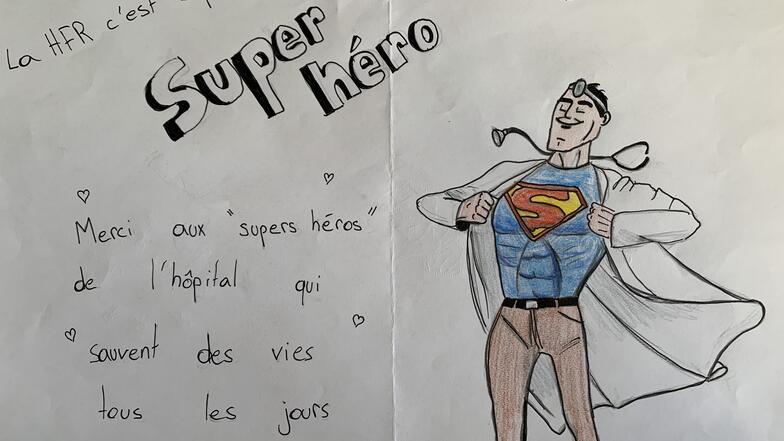 La HFR c'est
Super
héro
Merci aux "supers héros"
de l'hôpital qui
sauvent des vies
tous les jours
S